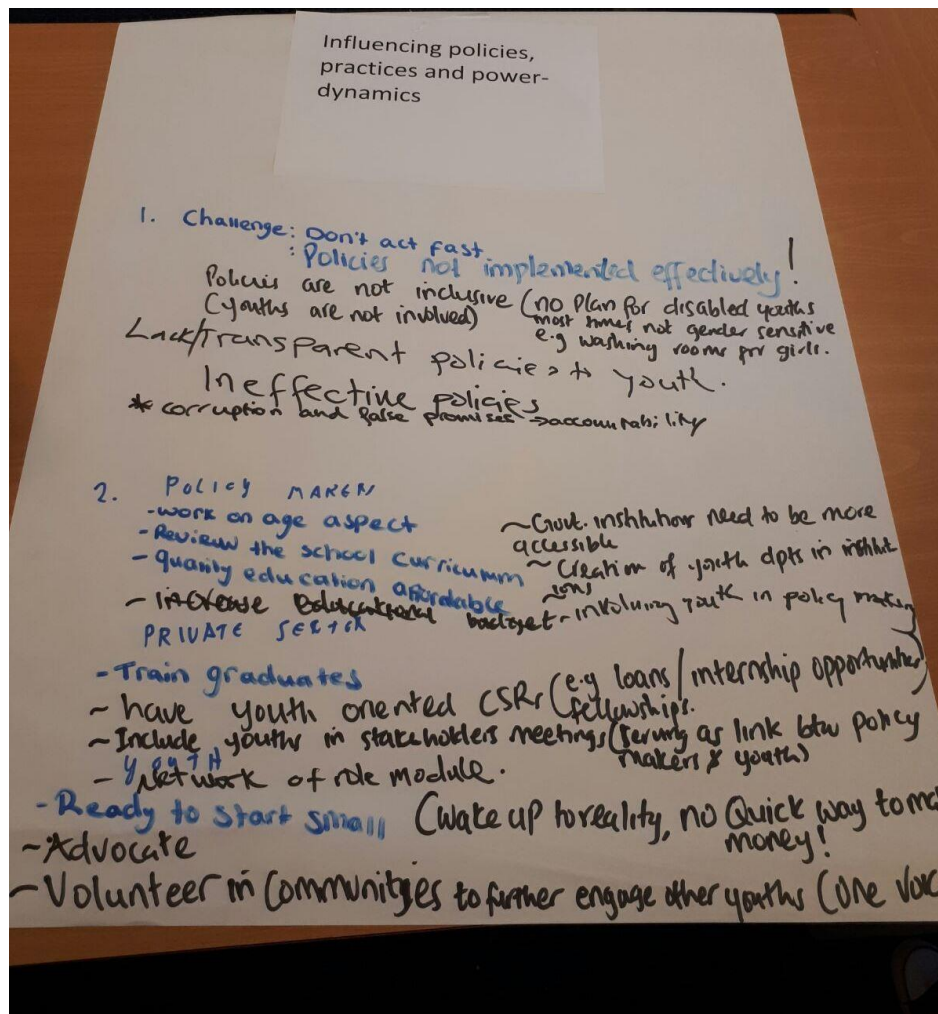 Influencing policies,
practices and power-
dynamics
1. Challenge: Don't act fast
: Policies not implemented effectively!
Policies are not inclusive (no Plan for disabled youths
(youths are not involved) most times not gender sensitive
e.g washing rooms for girls.
Lack/Transparent policies to youth.
Ineffective policies
* corruption and false promises → accountability
2. POLICY MAKERS
- work on age aspect
- Review the school curriculum
- quality education affordable
- increase Educational budget
~ Govt. institution need to be more
accessible
~ Creation of youth dpts in institut
ions
- involving youth in policy making
PRIVATE SECTOR
- Train graduates
~ have youth oriented CSRs (e.g loans/internship opportunities
fellowships.
~ Include youths in stakeholders meetings (serving as link btw policy
makers & youth)
YOUTH
- Network of role module.
- Ready to start small (wake up to reality, no Quick way to ma
money!
~ Advocate
~ Volunteer in Communities to further engage other youths (One Voic